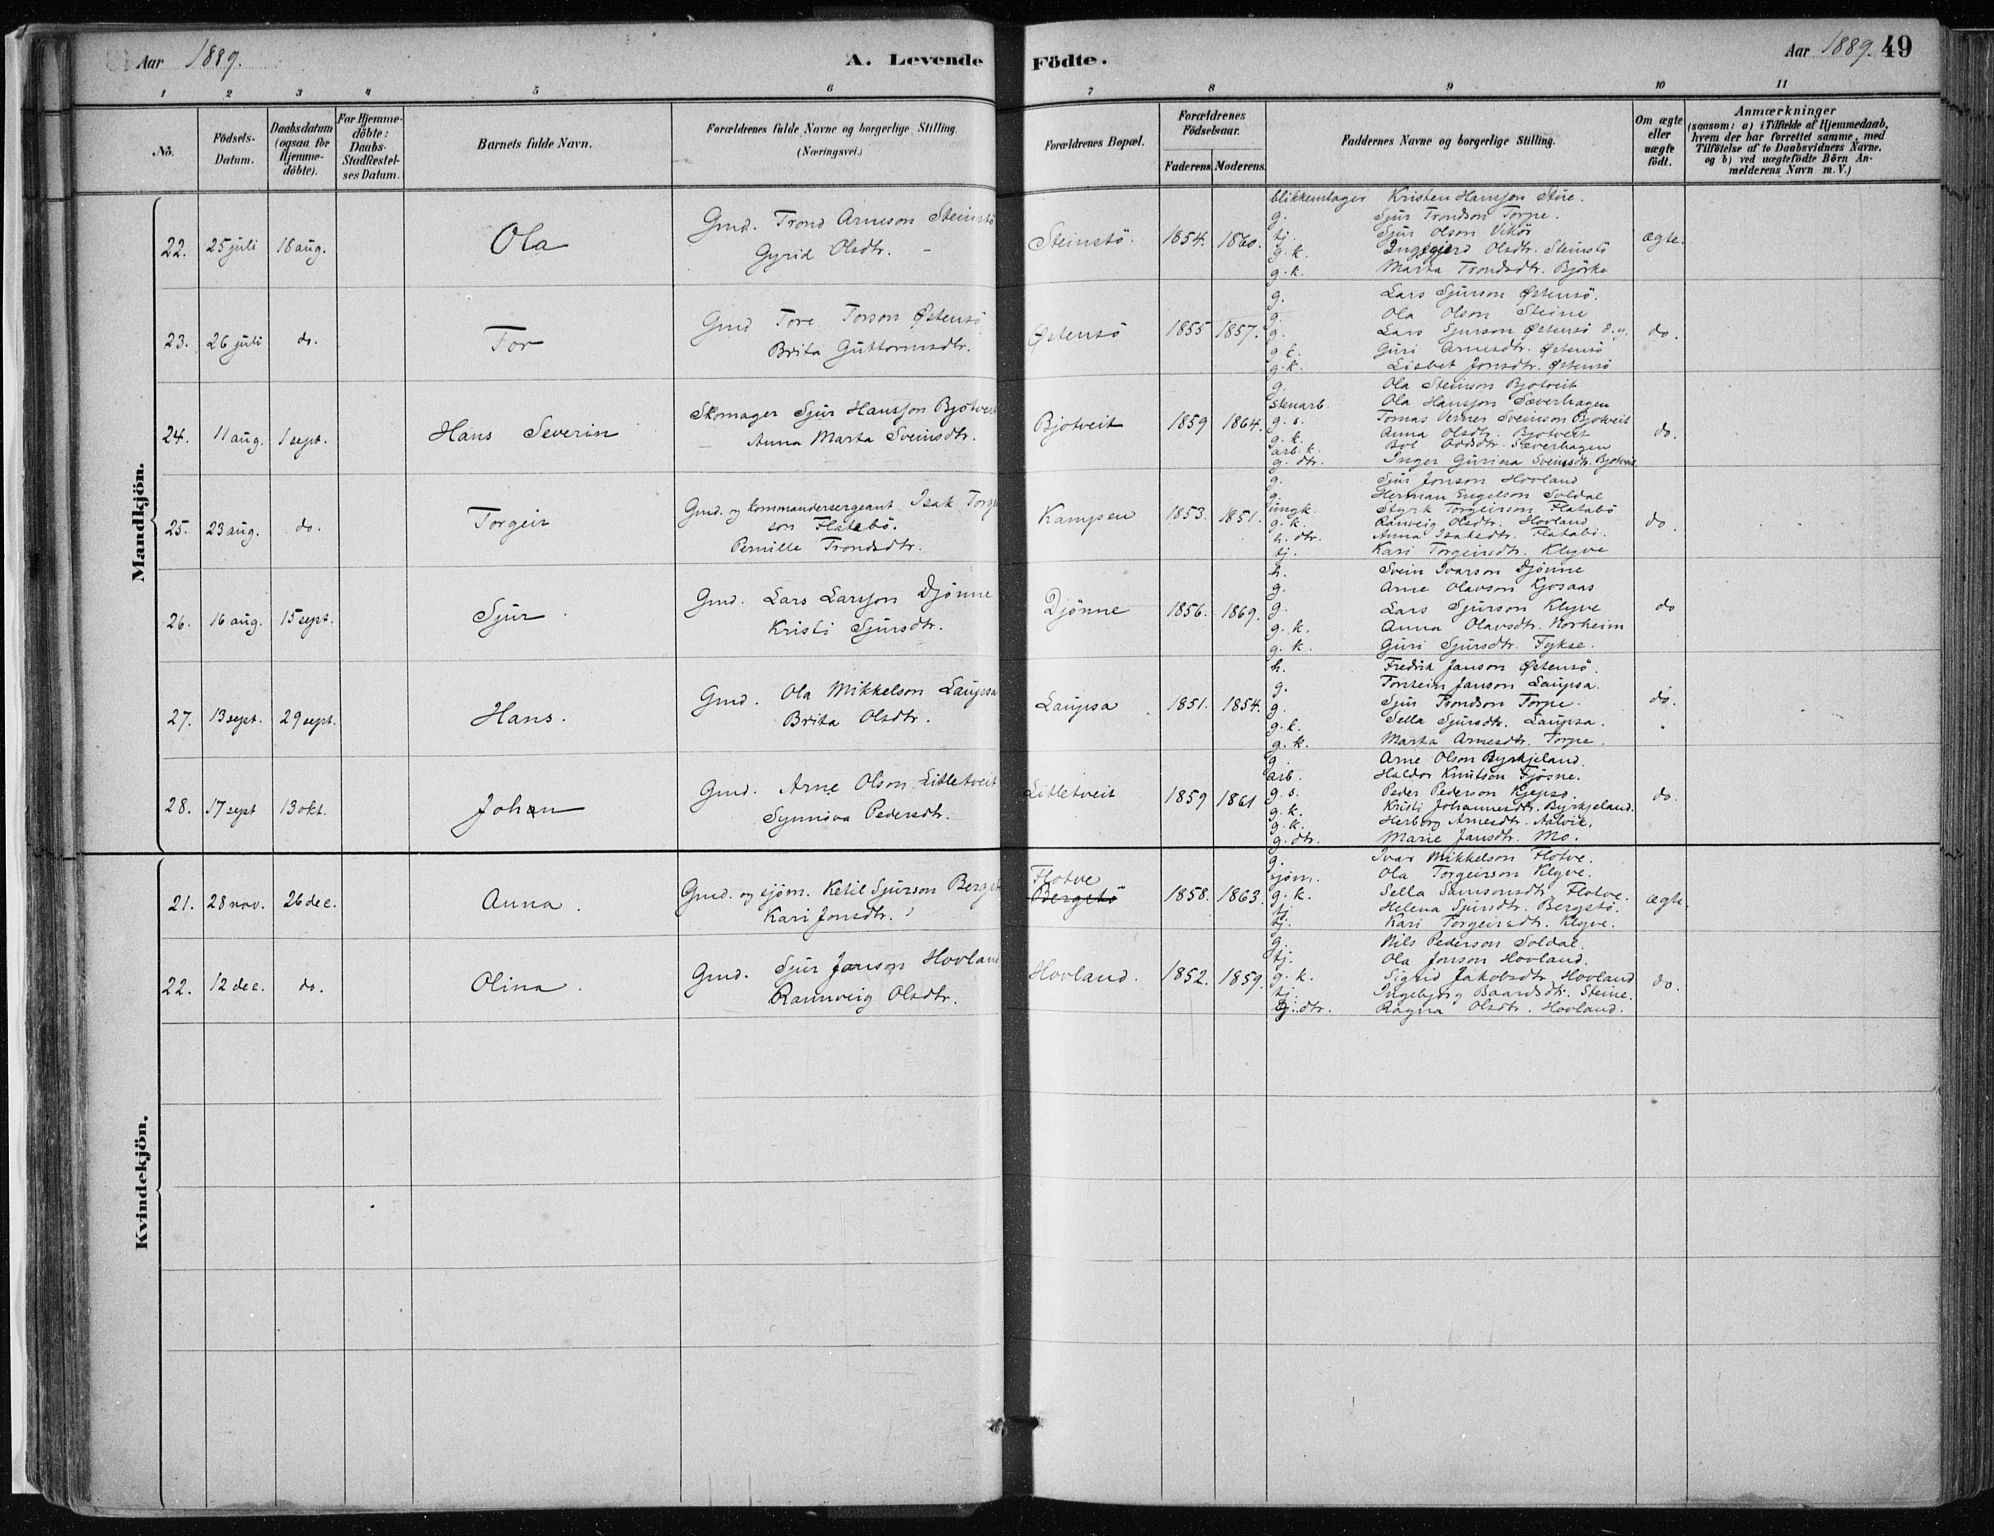 Aar 1889.
A. Levende Födte.
Aar 1889. 49
1 2 3 4 5 6 7 8 9 10 11
No.
Födsels-Datum.
Daabsdatum (ogsaa for Hjemme-döbte).
For Hjemme-döbte: Daabs-Stadfæstel-ses Datum.
Barnets fulde Navn.
Forældrenes fulde Navne og borgerlige Stilling. (Næringsvei.)
Forældrenes Bopæl.
Forældrenes Födselsaar.
Faderens. Moderens.
Faddernes Navne og borgerlige Stilling.
Om ægte eller uægte födt.
Anmærkninger
(saasom: a) i Tilfælde af Hjemmedaab, hvem der har forrettet samme, med Tilföielse af to Daabsvidners Navne. og b) ved uægtefödte Börn An-melderens Navn m. V.)
Mandkjön.
22. 25 juli 18 aug. Ola
Gmd. Trond Arneson Steinstö
Gyrid Olsdtr. -
Steinstö. 1854. 1860.
blikkenslager Kristen Hansson Stue.
g. Sjur Trondson Torpe.
tj. Sjur Olson Vikör
g. k. Ingegjerd Olsdtr. Steinstö
g. k. Marta Trondsdtr. Björke
ægte.
23. 26 juli do. Tor
Gmd Tore Torson Østensö
Brita Guttormsdtr.
Østensö 1855 1857.
g. Lars Sjurson Østensö.
g. Ola Olson Steine
g. Lars Sjurson Østensö d.y.
g. k. Guri Arnesdtr. Østensö
g. k. Lisbet Jonsdtr. Østensö
do.
24. 11 aug. 1 sept. Hans Severin
Skomager Sjur Hansson Bjotveit
Anna Marta Sveinsdtr.
Bjotveit 1859 1864.
g. Ola Steinson Bjotveit
stenarb. Ola Hansson Sæverhagen
g. s. Tomas Verner Sveinson Bjotveit
g. k. Anna Olsdtr. Bjotveit
arb. k. Sæverhagen
g. dtr. Inger Gurina Sveinsdtr. Bjotveit
do.
25. 23 aug. do. Torgeir
Gmd. og kommandersergeant Isak Torgei
son Flatebö.
Pernille Trondsdtr.
Kampen 1853. 1851.
g. Sjur Jonson Hovland
g. Herman Engelson Soldal
ungk. Styrk Torgeirson Flatabö
g. k. Ranveig Olsdtr. Hovland
h. dtr. Anna Isaksdtr. Flatabö.
tj. Kari Torgeirsdtr. Klyve
do.
26. 16 aug. 15 sept. Sjur
Gmd. Lars Larsson Djönne
Kristi Sjursdtr.
Djönne 1856. 1869.
h. Svein Ivarson Djönne
g. Arne Olavson Kjosaas
g. Lars Sjurson Klyve
g. k. Anna Olavsdtr. Norheim
g. k. Guri Sjursdtr. Fykse.
do
27. 13 sept. 29 sept. Hans.
Gmd. Ola Mikkelson Laupsa
Brita Olsdtr.
Laupsa 1851. 1854.
h. Fredrik Janson Østensö.
g. Torstein Janson Laupsa.
g. Sjur Trondson Torpe.
g. k. Sella Sjursdtr. Laupsa.
g. k. Marta Arnesdtr. Torpe.
do.
28. 17 sept 13 okt. Johan
Gmd. Arne Olson Litletveit
Synnöva Pedersdtr.
Litletveit 1859 1861
g. Arne Olson Byrkjeland.
arb. Haldor Knutson Fjösne.
g. s. Peder Pederson Kjepso.
g. k. Kristi Johannesdtr. Byrkjeland.
g. k. Herborg Arnesdtr. Aalvik.
g. dtr. Marie Jansdtr. Mo.
do.
Kvindekjön.
21. 28 nov. 26 dec. Anna.
Gmd. og sjöm. Ketil Sjurson Bergstö
Kari Jonsdtr.
Flotve
Bergstö 1858. 1863.
g. Ivar Mikkelson Flotve.
sjöm. Ola Torgeirson Klyve.
g. k. Sella Samsonsdtr. Flotve.
tj. Helena Sjursdtr. Bergstö.
tj. Kari Torgeirsdtr. Klyve.
ægte.
22. 12 dec. do. Olina.
Gmd. Sjur Janson Hovland
Rannveig Olsdtr.
Hovland. 1852. 1859.
g. Nils Pederson Soldal.
tj. Ola Jonson Hovland.
g. k. Sigrid Jakobsdtr. Hovland
tj. Ingebjörg Baardsdtr. Steine.
dtr. Ragna Olsdtr. Hovland.
do.